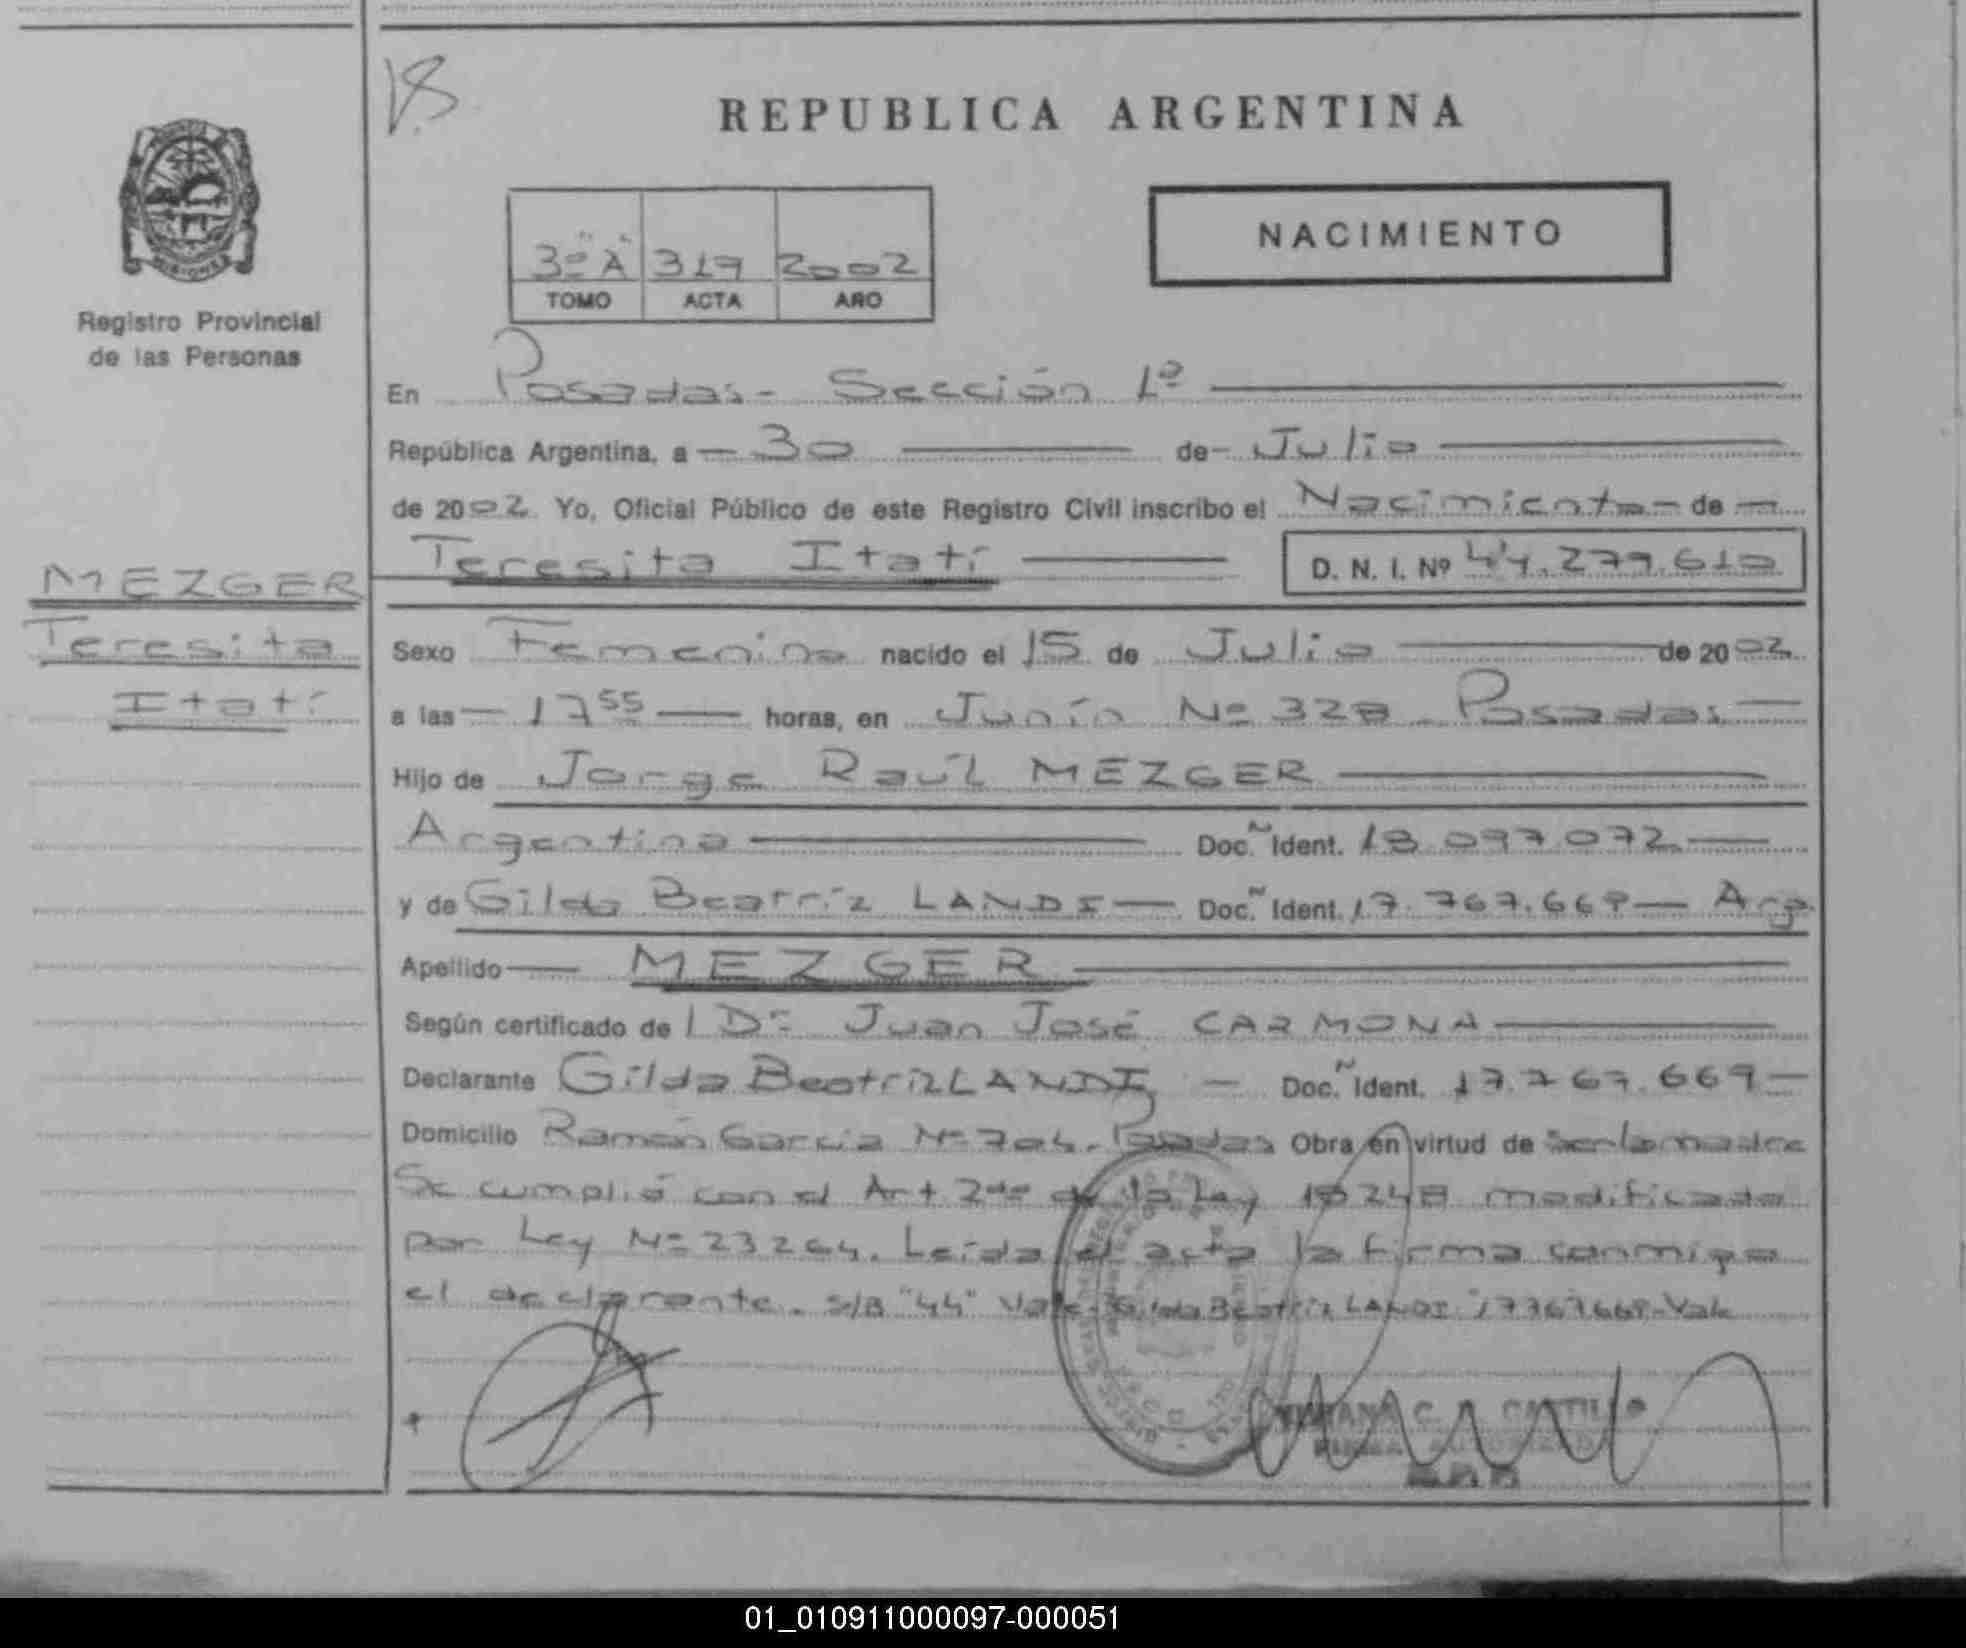 REPUBLICA ARGENTINA
NACIMIENTO
3º "A" 319 2002
TOMO ACTA AÑO
MISIONES
Registro Provincial
de las Personas
En Posadas - Sección 1ª
República Argentina, a 30 de Julio
de 2002 Yo, Oficial Público de este Registro Civil inscribo el Nacimiento de
Teresita Itatí
D. N. I. Nº 44.279.610
MEZGER
Teresita
Itatí
Sexo Femenino nacido el 15 de Julio de 2002
a las 17 55 horas, en Junín Nº 328 - Posadas
Hijo de Jorge Raúl MEZGER
Argentina Doc. Ident. 18.097.072
y de Gilda Beatríz LANDI Doc. Ident. 17.767.669 Arg.
Apellido MEZGER
Según certificado del Dr. Juan José CARMONA
Declarante Gilda Beatriz LANDI Doc. Ident. 17.767.669
Domicilio Ramón García Nº 704 - Posadas Obra en virtud de ser la madre
Se cumplió con el Art 2do de la Ley 18248 modificado
por Ley Nº 23264. Leída el acta la firma conmigo
el declarante. s/B "44" Vale - Gilda Beatriz LANDI 17767669 - Vale
C. CASTILLO
FIRMA AUTORIZADA
01_010911000097-000051